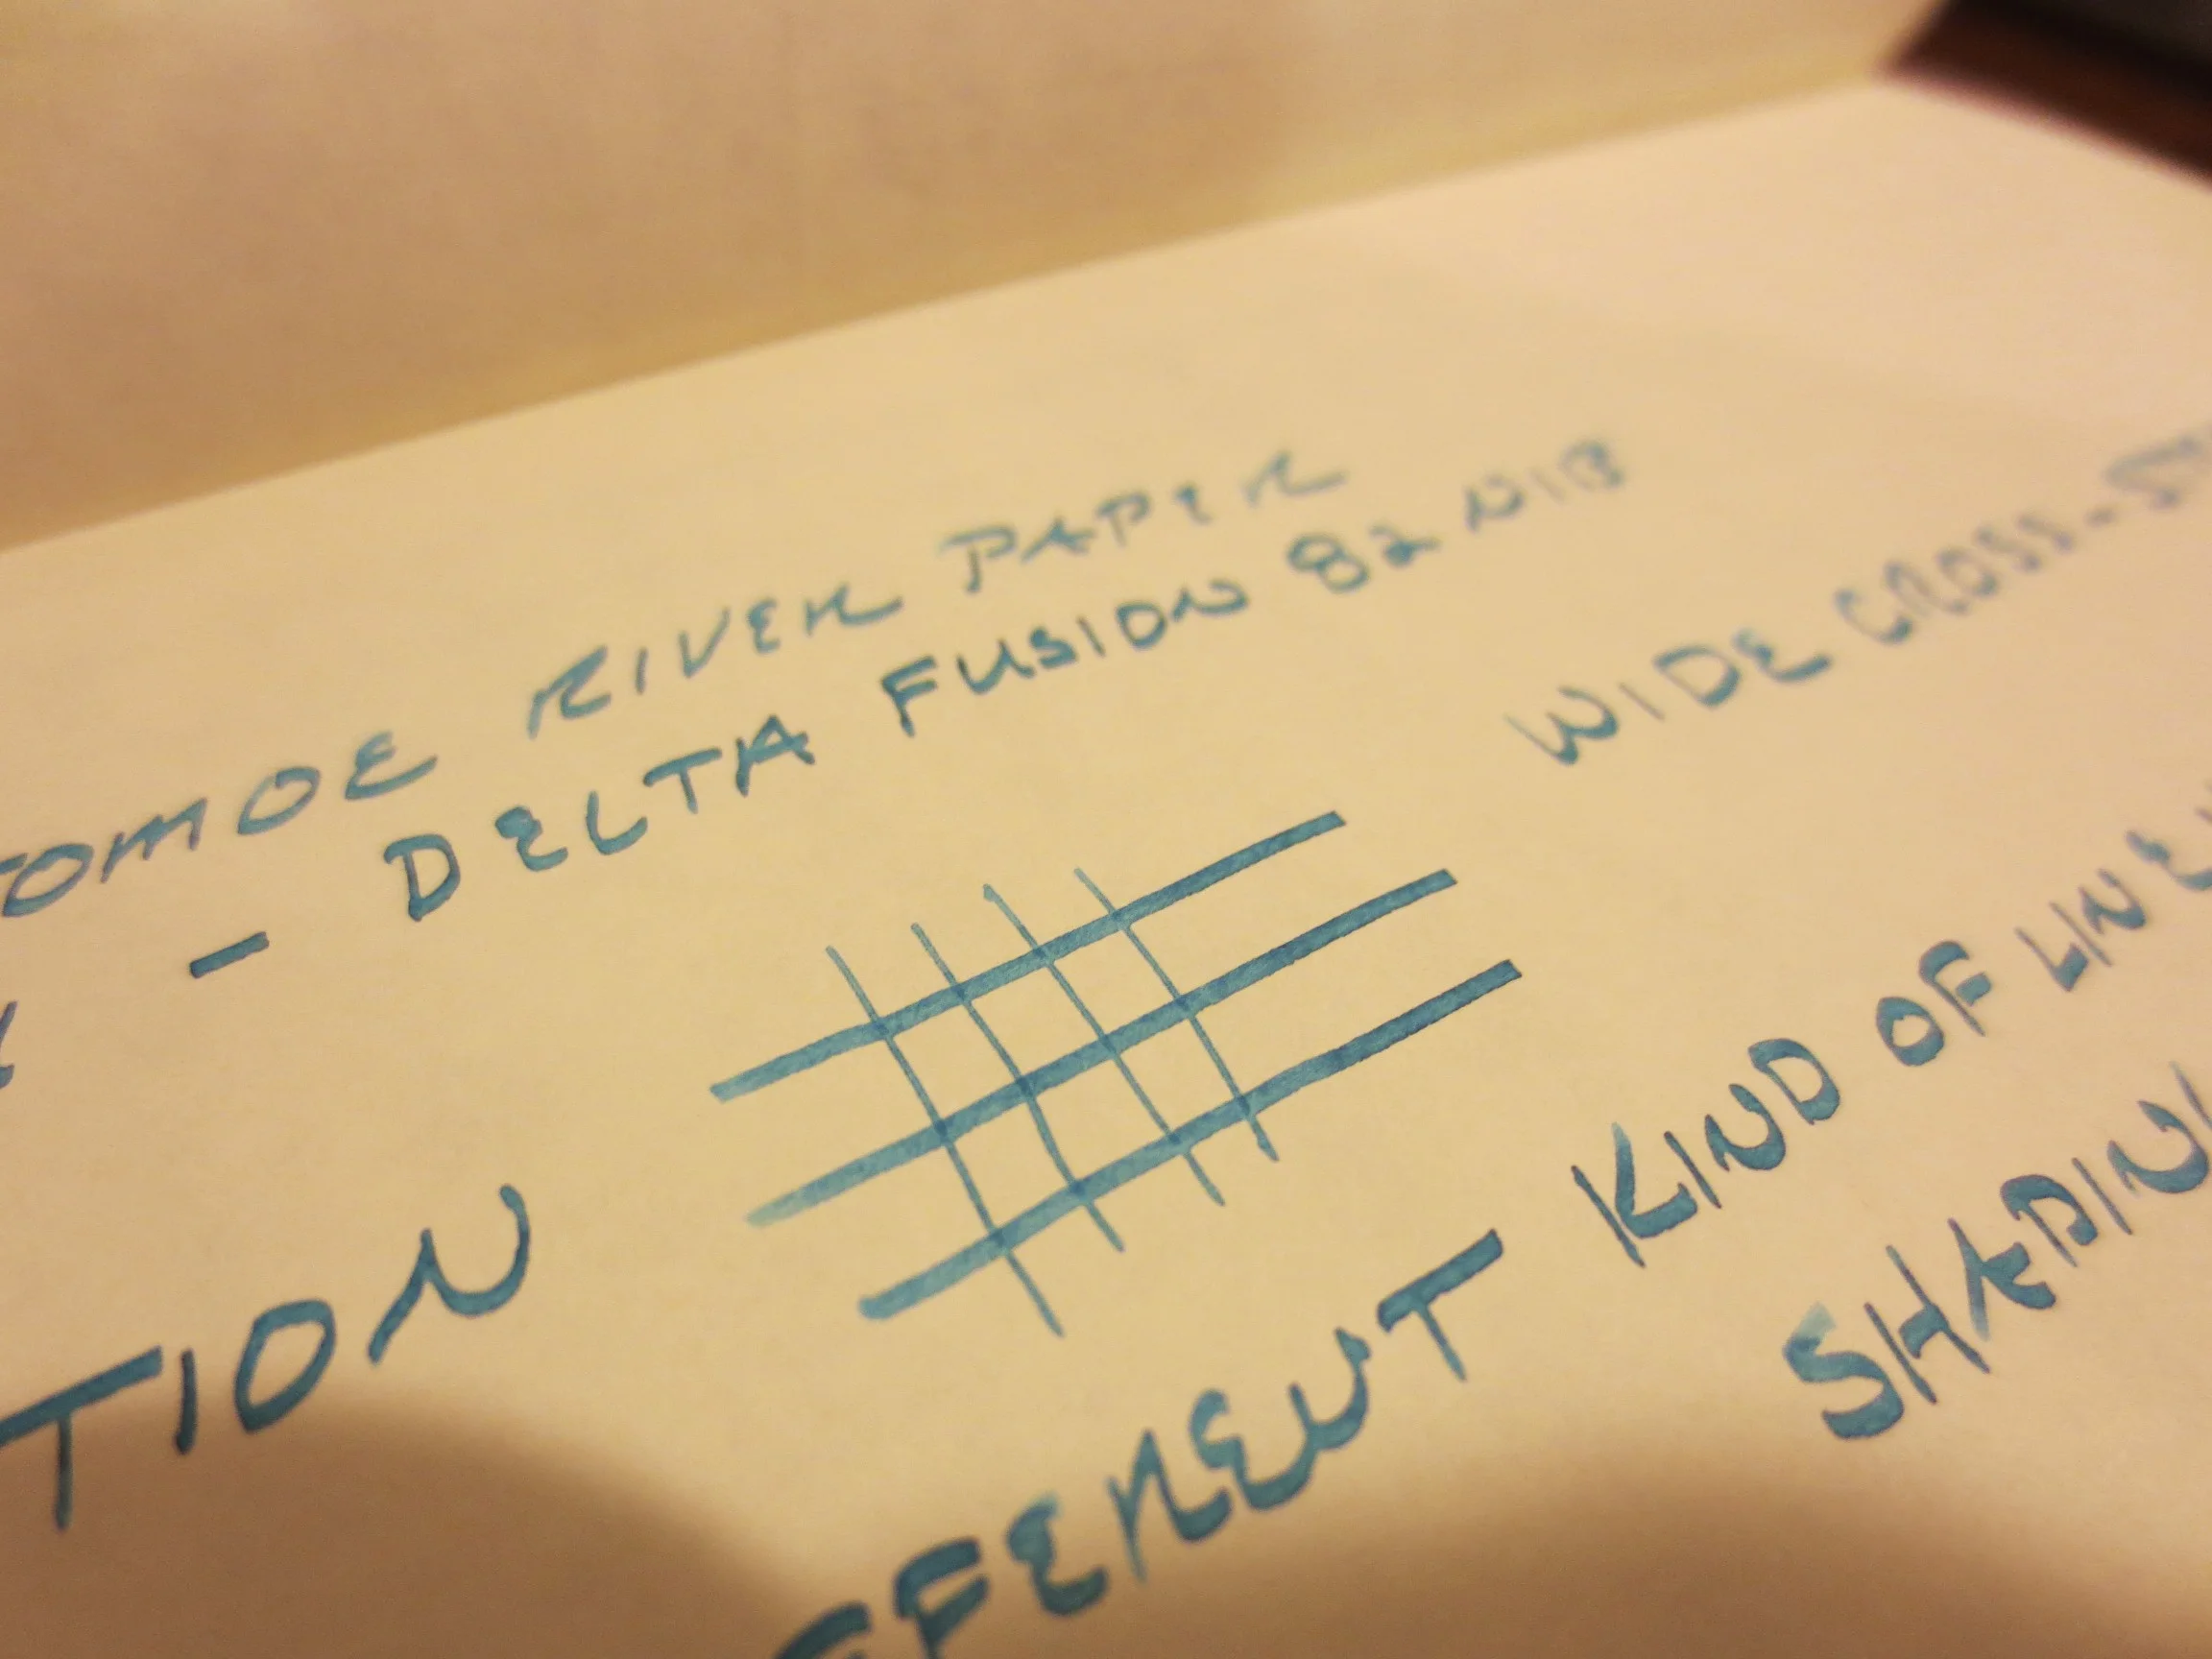 TOMOE RIVER PAPER
- DELTA FUSION 82 NIB
WIDE CROSS-ST
TION
KIND OF LINE
FFERENT
SHADIN